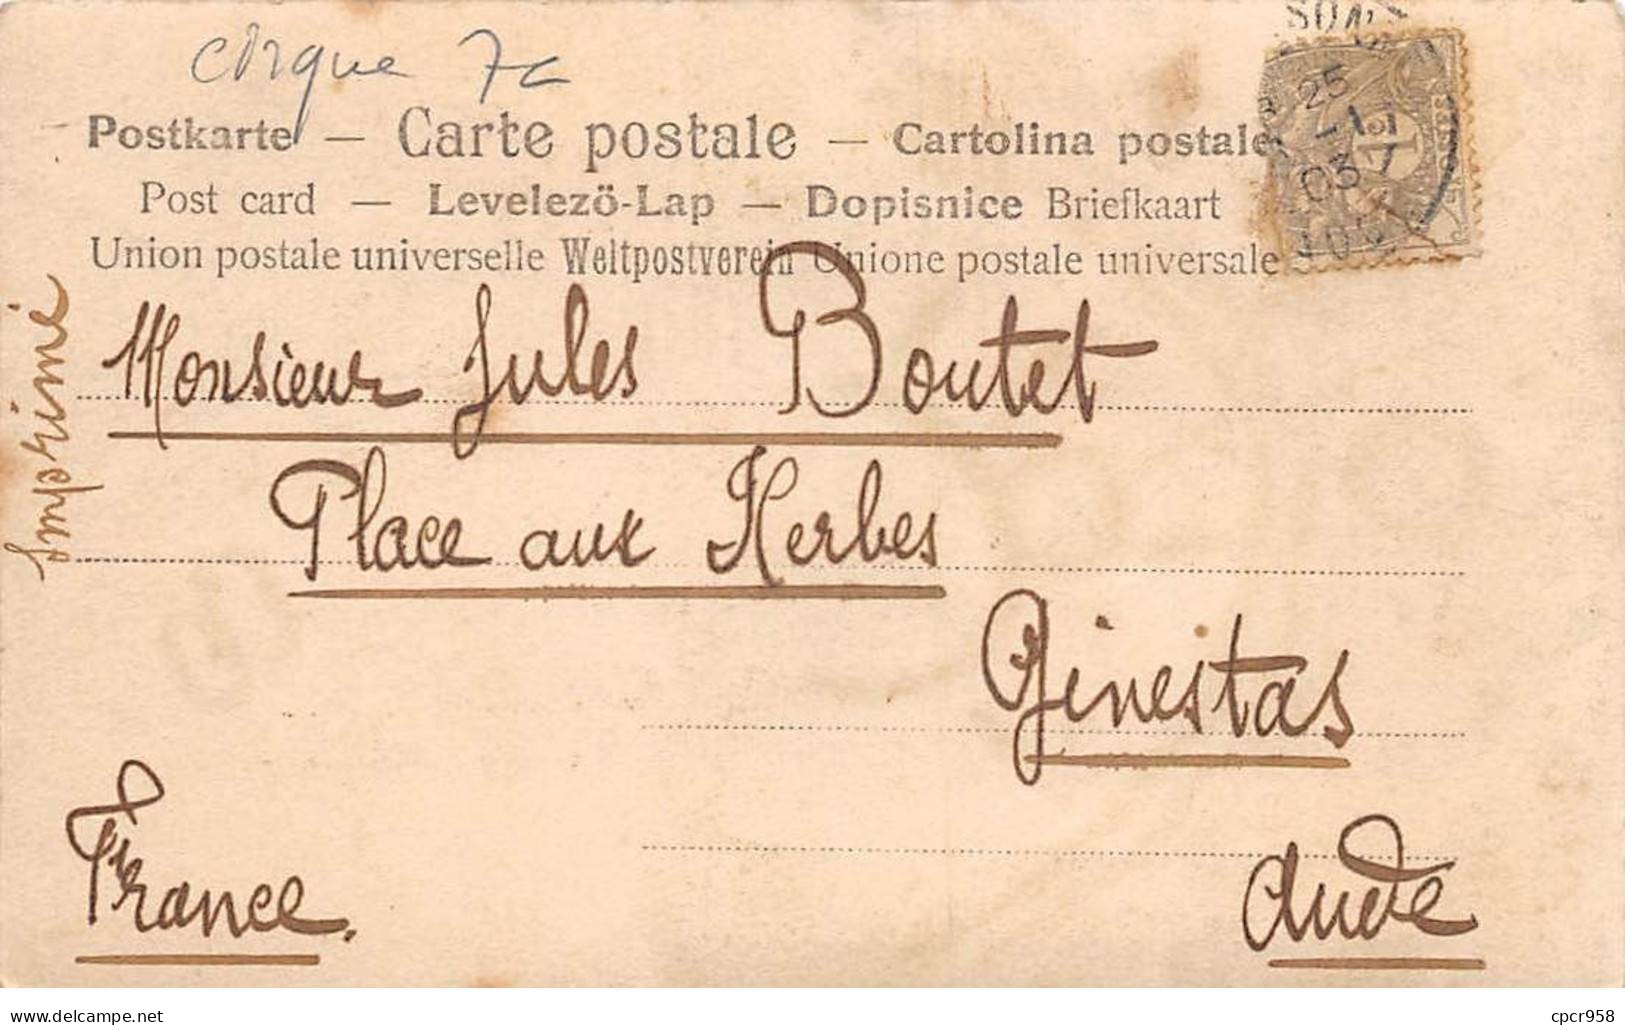 cirque 7c
Postkarte — Carte postale — Cartolina postale
Post card — Levelezö-Lap — Dopisnice Briefkaart
Union postale universelle Weltpostverein Unione postale universale
Imprimé
Monsieur Jules Boutet
Place aux Herbes
Ginestas
Aude
France.
25
03
delcampe.net
cpcr958